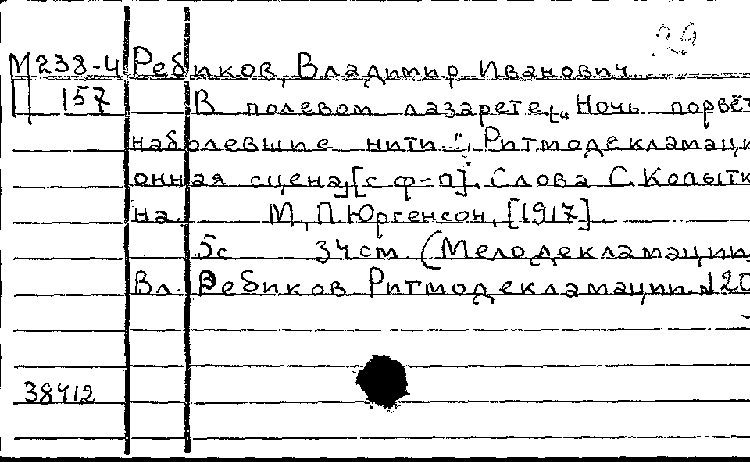 29
М238-4 Ребиков, Владимир Иванович
157 В полевом лазарете. [„Ночь порвёт
наболевшие нити..."]. Ритмодекламаци-
онная сцена, [с ф-п]. Слова С. Копытк
на. М., П. Юргенсон, [1917].
5с 34 см. (Мелодекламации
Вл. Ребиков Ритмодекламации №20
38412